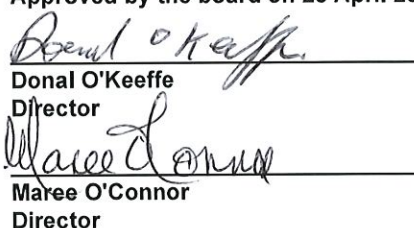 Approved by the board on 2
Donal O'Keeffe
Donal O'Keeffe
Director
Maree O'Connor
Maree O'Connor
Director